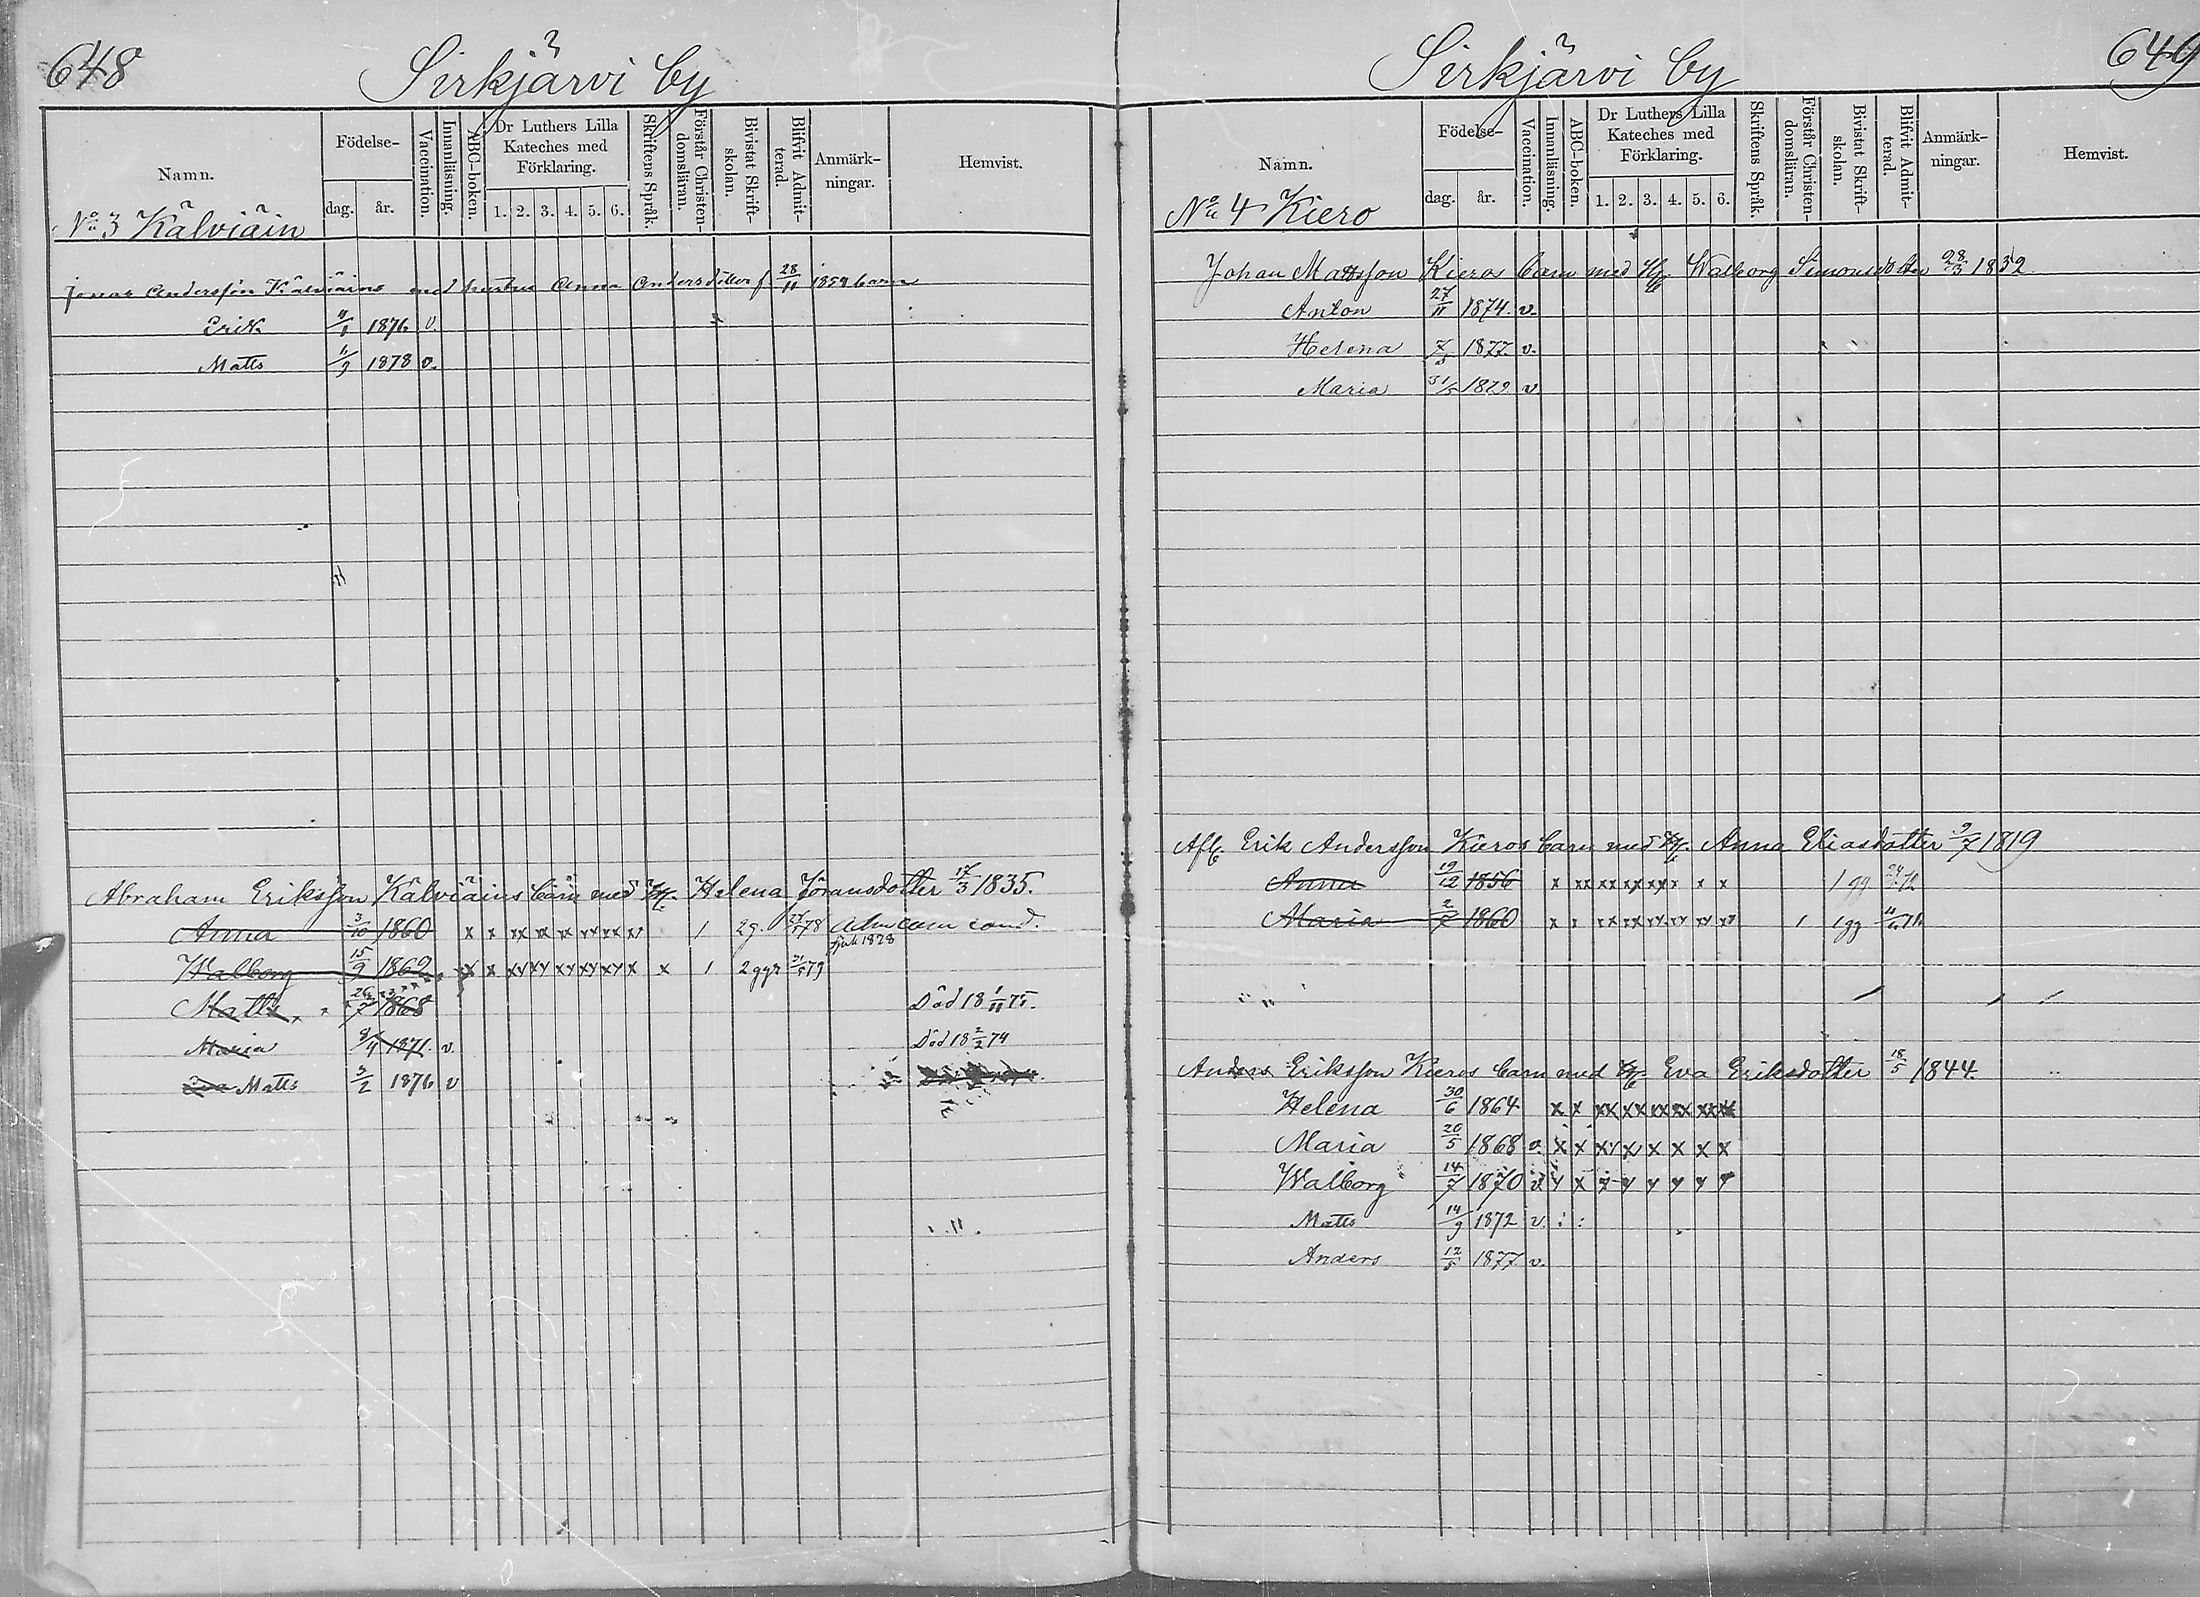 648
Sirkjärvi by
Namn.
Födelse-
dag.
år.
Vaccination.
Innanläsning.
ABC-boken.
Dr Luthers Lilla
Kateches med
Förklaring.
1. 2. 3. 4. 5. 6.
Skriftens Språk.
Förstår Christen-
domsläran.
Bivistat Skrift-
skolan.
Blifvit Admit-
terad.
Anmärk-
ningar.
Hemvist.
No 3 Kälviäin
Jonas Andersson Kälviäins med hustru Anna Andersdotter f 28/11 1859 barn
Erik 1876 v.
Matts 11/9 1878 v.
Abraham Eriksson Kälviäins barn med H. Helena Joransdotter 17/3 1835.
Anna 3/10 1860 x x xx xx xx xx 1 2g. 78
1878
Walborg 15/9 1862 x x xy xy xy xy xy x x 1 2 ggr 79
Matts 26/7 1868 Död 18 1/11 75.
Maria 8/4 1871. v. Död 18 2/2 74
Eva Matts 3/2 1876 v
649
Sirkjärvi by
Namn.
Födelse-
dag.
år.
Vaccination.
Innanläsning.
ABC-boken.
Dr Luthers Lilla
Kateches med
Förklaring.
1. 2. 3. 4. 5. 6.
Skriftens Språk.
Förstår Christen-
domsläran.
Bivistat Skrift-
skolan.
Blifvit Admit-
terad.
Anmärk-
ningar.
Hemvist.
No 4 Kiero
Johan Mattsson Kieros barn med H. Walborg Simonsdotter 28/3 1832
Anton 27/11 1874. v.
Helena 7/5 1877. v.
Maria 31/5 1879 v
Afl. Erik Andersson Kieros barn med H. Anna Eliasdotter 9/7 1819
Anna 19/12 1856 x xx xx xx xx x x 1 gg
Maria 2/7 1860 x x xx xx xx xx xx xx 1 1 gg
Anders Eriksson Kieros barn med H. Eva Eriksdotter 18/5 1844
Helena 30/6 1864 x x xx xx xx xx xx xx
Maria 20/5 1868 v. x x xx xx x x x x
Walborg 14/7 1870 v y x y y y y y y
Matts 14/9 1872 v.
Anders 12/5 1877 v.